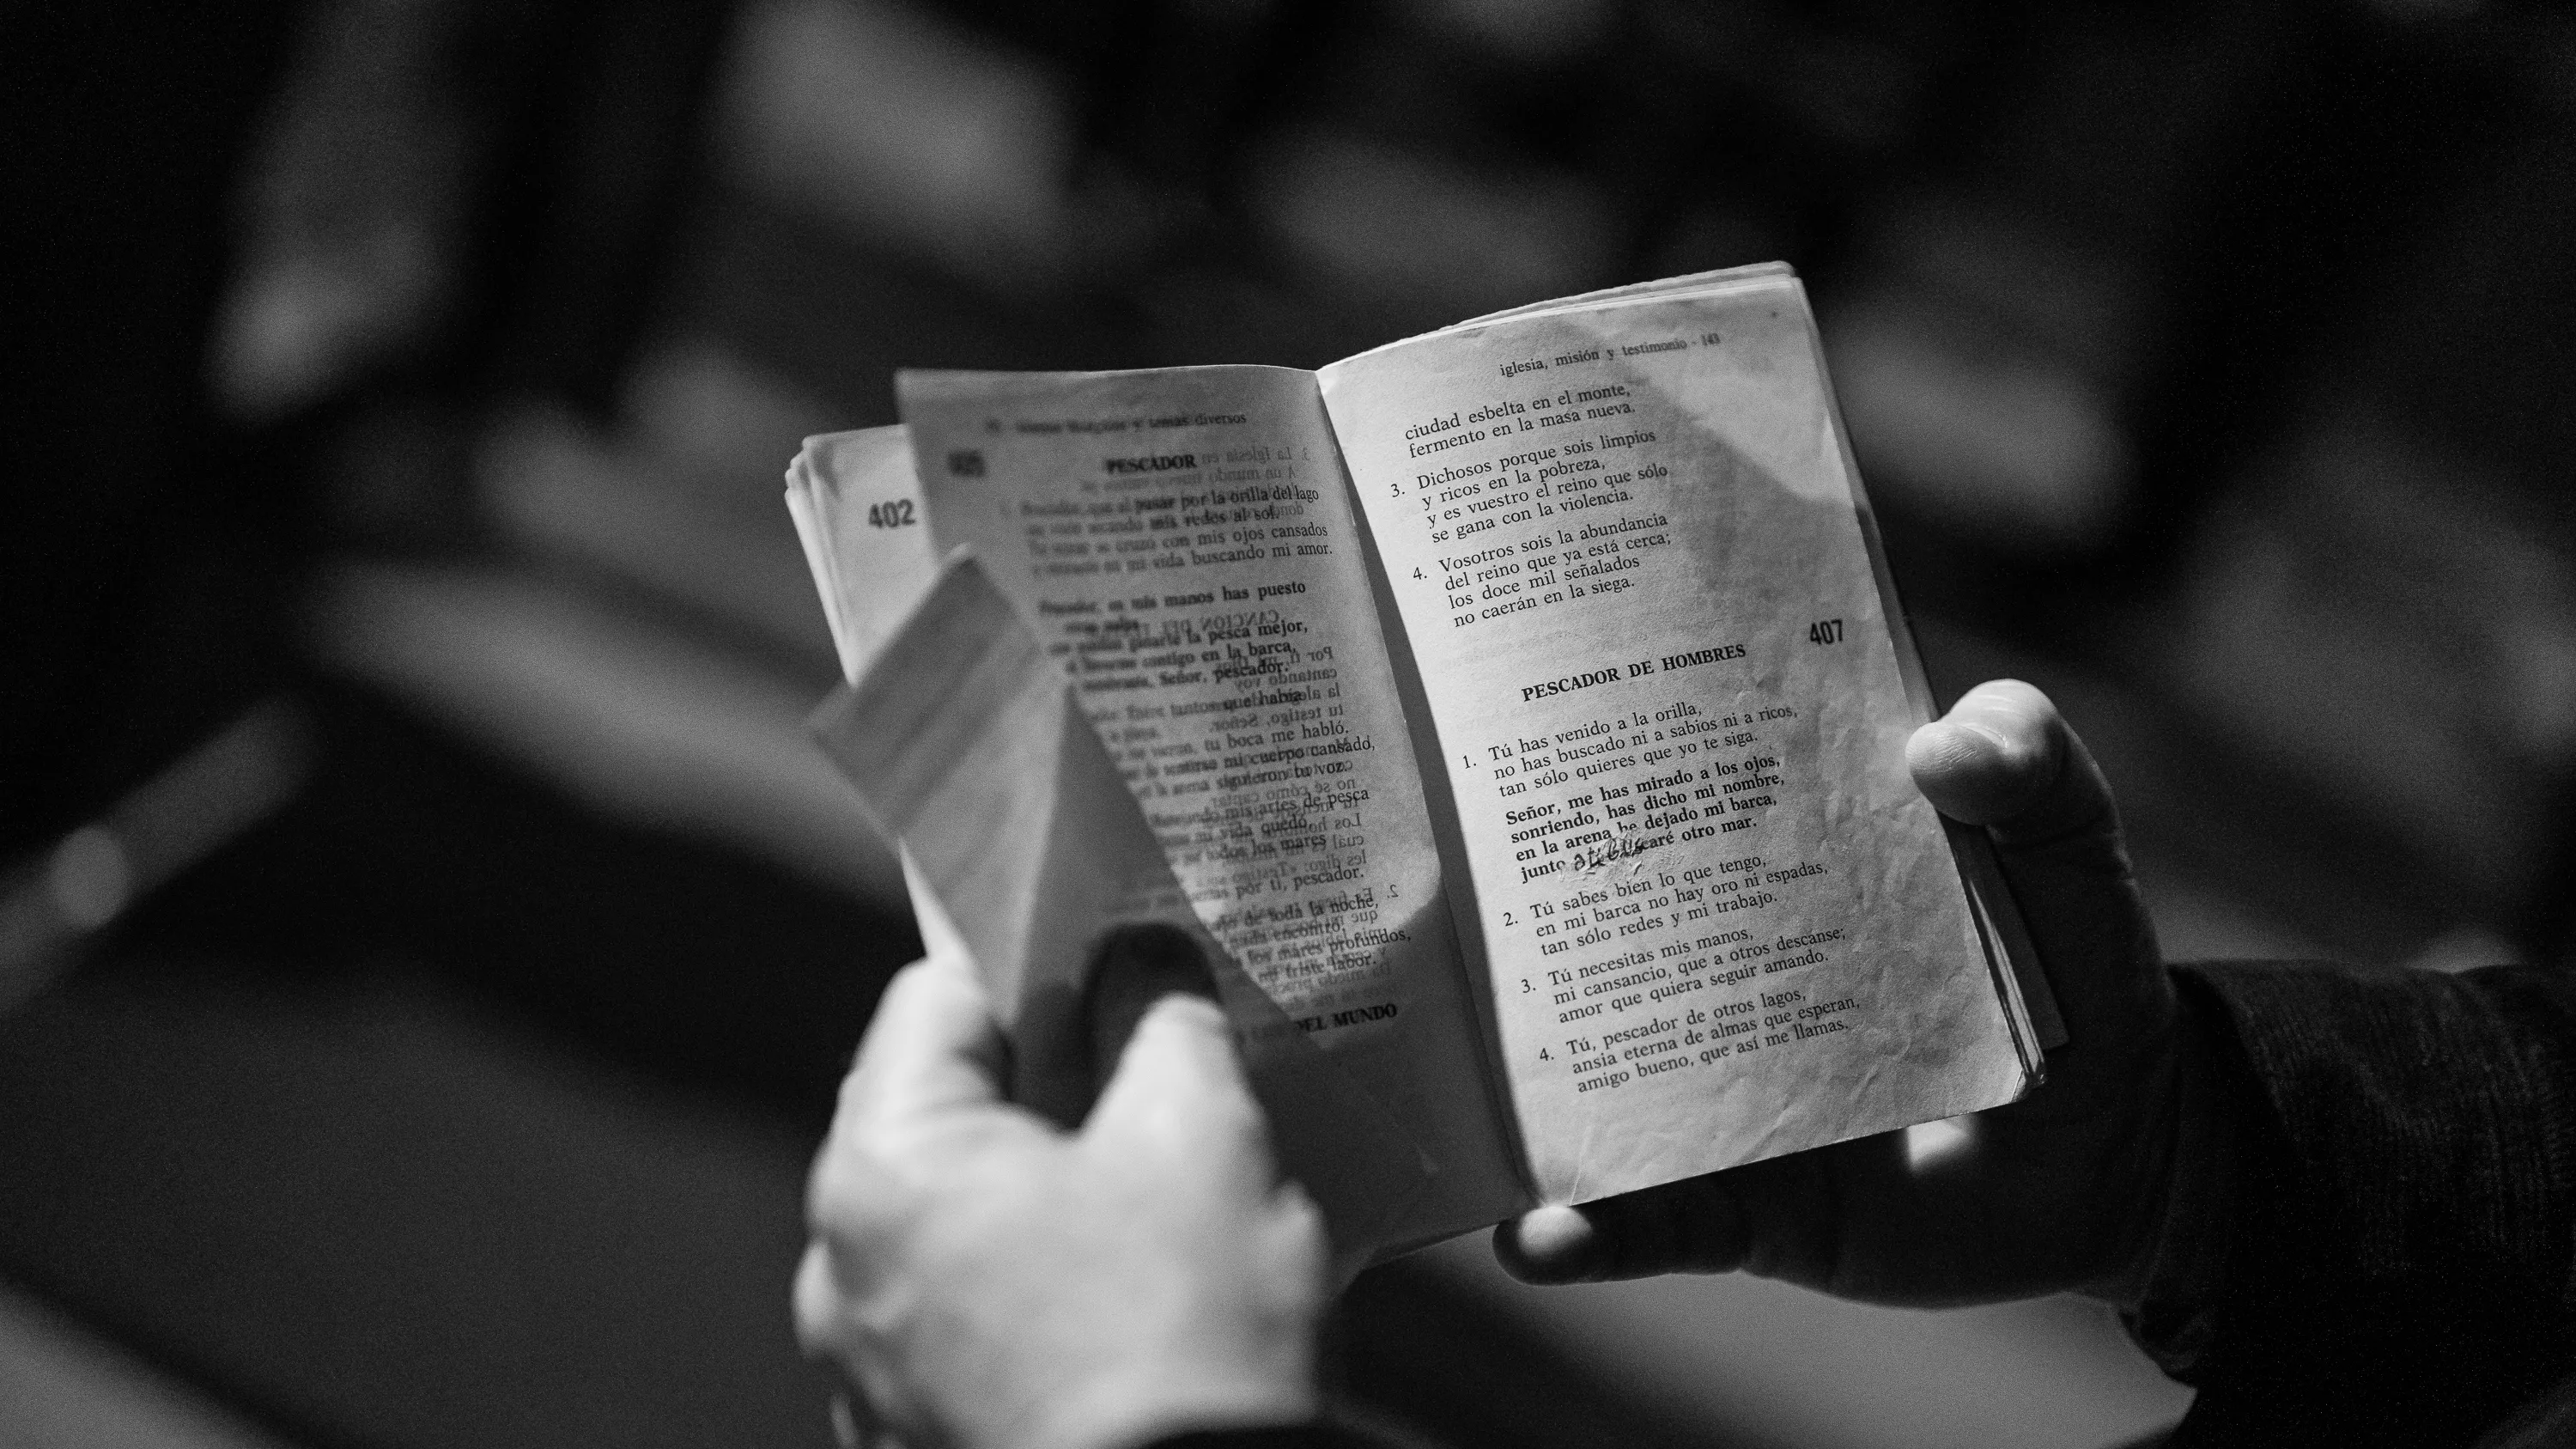 402
temas diversos
PESCADOR
pasar por la orilla del lago
mis redes al sol,
con mis ojos cansados
vida buscando mi amor.
en mis manos has puesto
la pesca mejor,
contigo en la barca,
Señor, pescador.
tantos que había
tu boca me habló.
mi cuerpo cansado,
siguieron tu voz.
mis artes de pesca
mi vida quedó
todos los mares
por ti, pescador.
de toda la noche,
encontró,
los mares profundos,
mi triste labor.
DEL MUNDO
iglesia, misión y testimonio - 143
ciudad esbelta en el monte,
fermento en la masa nueva.
3. Dichosos porque sois limpios
y ricos en la pobreza,
y es vuestro el reino que sólo
se gana con la violencia.
4. Vosotros sois la abundancia
del reino que ya está cerca;
los doce mil señalados
no caerán en la siega.
407
PESCADOR DE HOMBRES
1. Tú has venido a la orilla,
no has buscado ni a sabios ni a ricos,
tan sólo quieres que yo te siga.
Señor, me has mirado a los ojos,
sonriendo, has dicho mi nombre,
en la arena he dejado mi barca,
junto a ti buscaré otro mar.
2. Tú sabes bien lo que tengo,
en mi barca no hay oro ni espadas,
tan sólo redes y mi trabajo.
3. Tú necesitas mis manos,
mi cansancio, que a otros descanse;
amor que quiera seguir amando.
4. Tú, pescador de otros lagos,
ansia eterna de almas que esperan,
amigo bueno, que así me llamas.